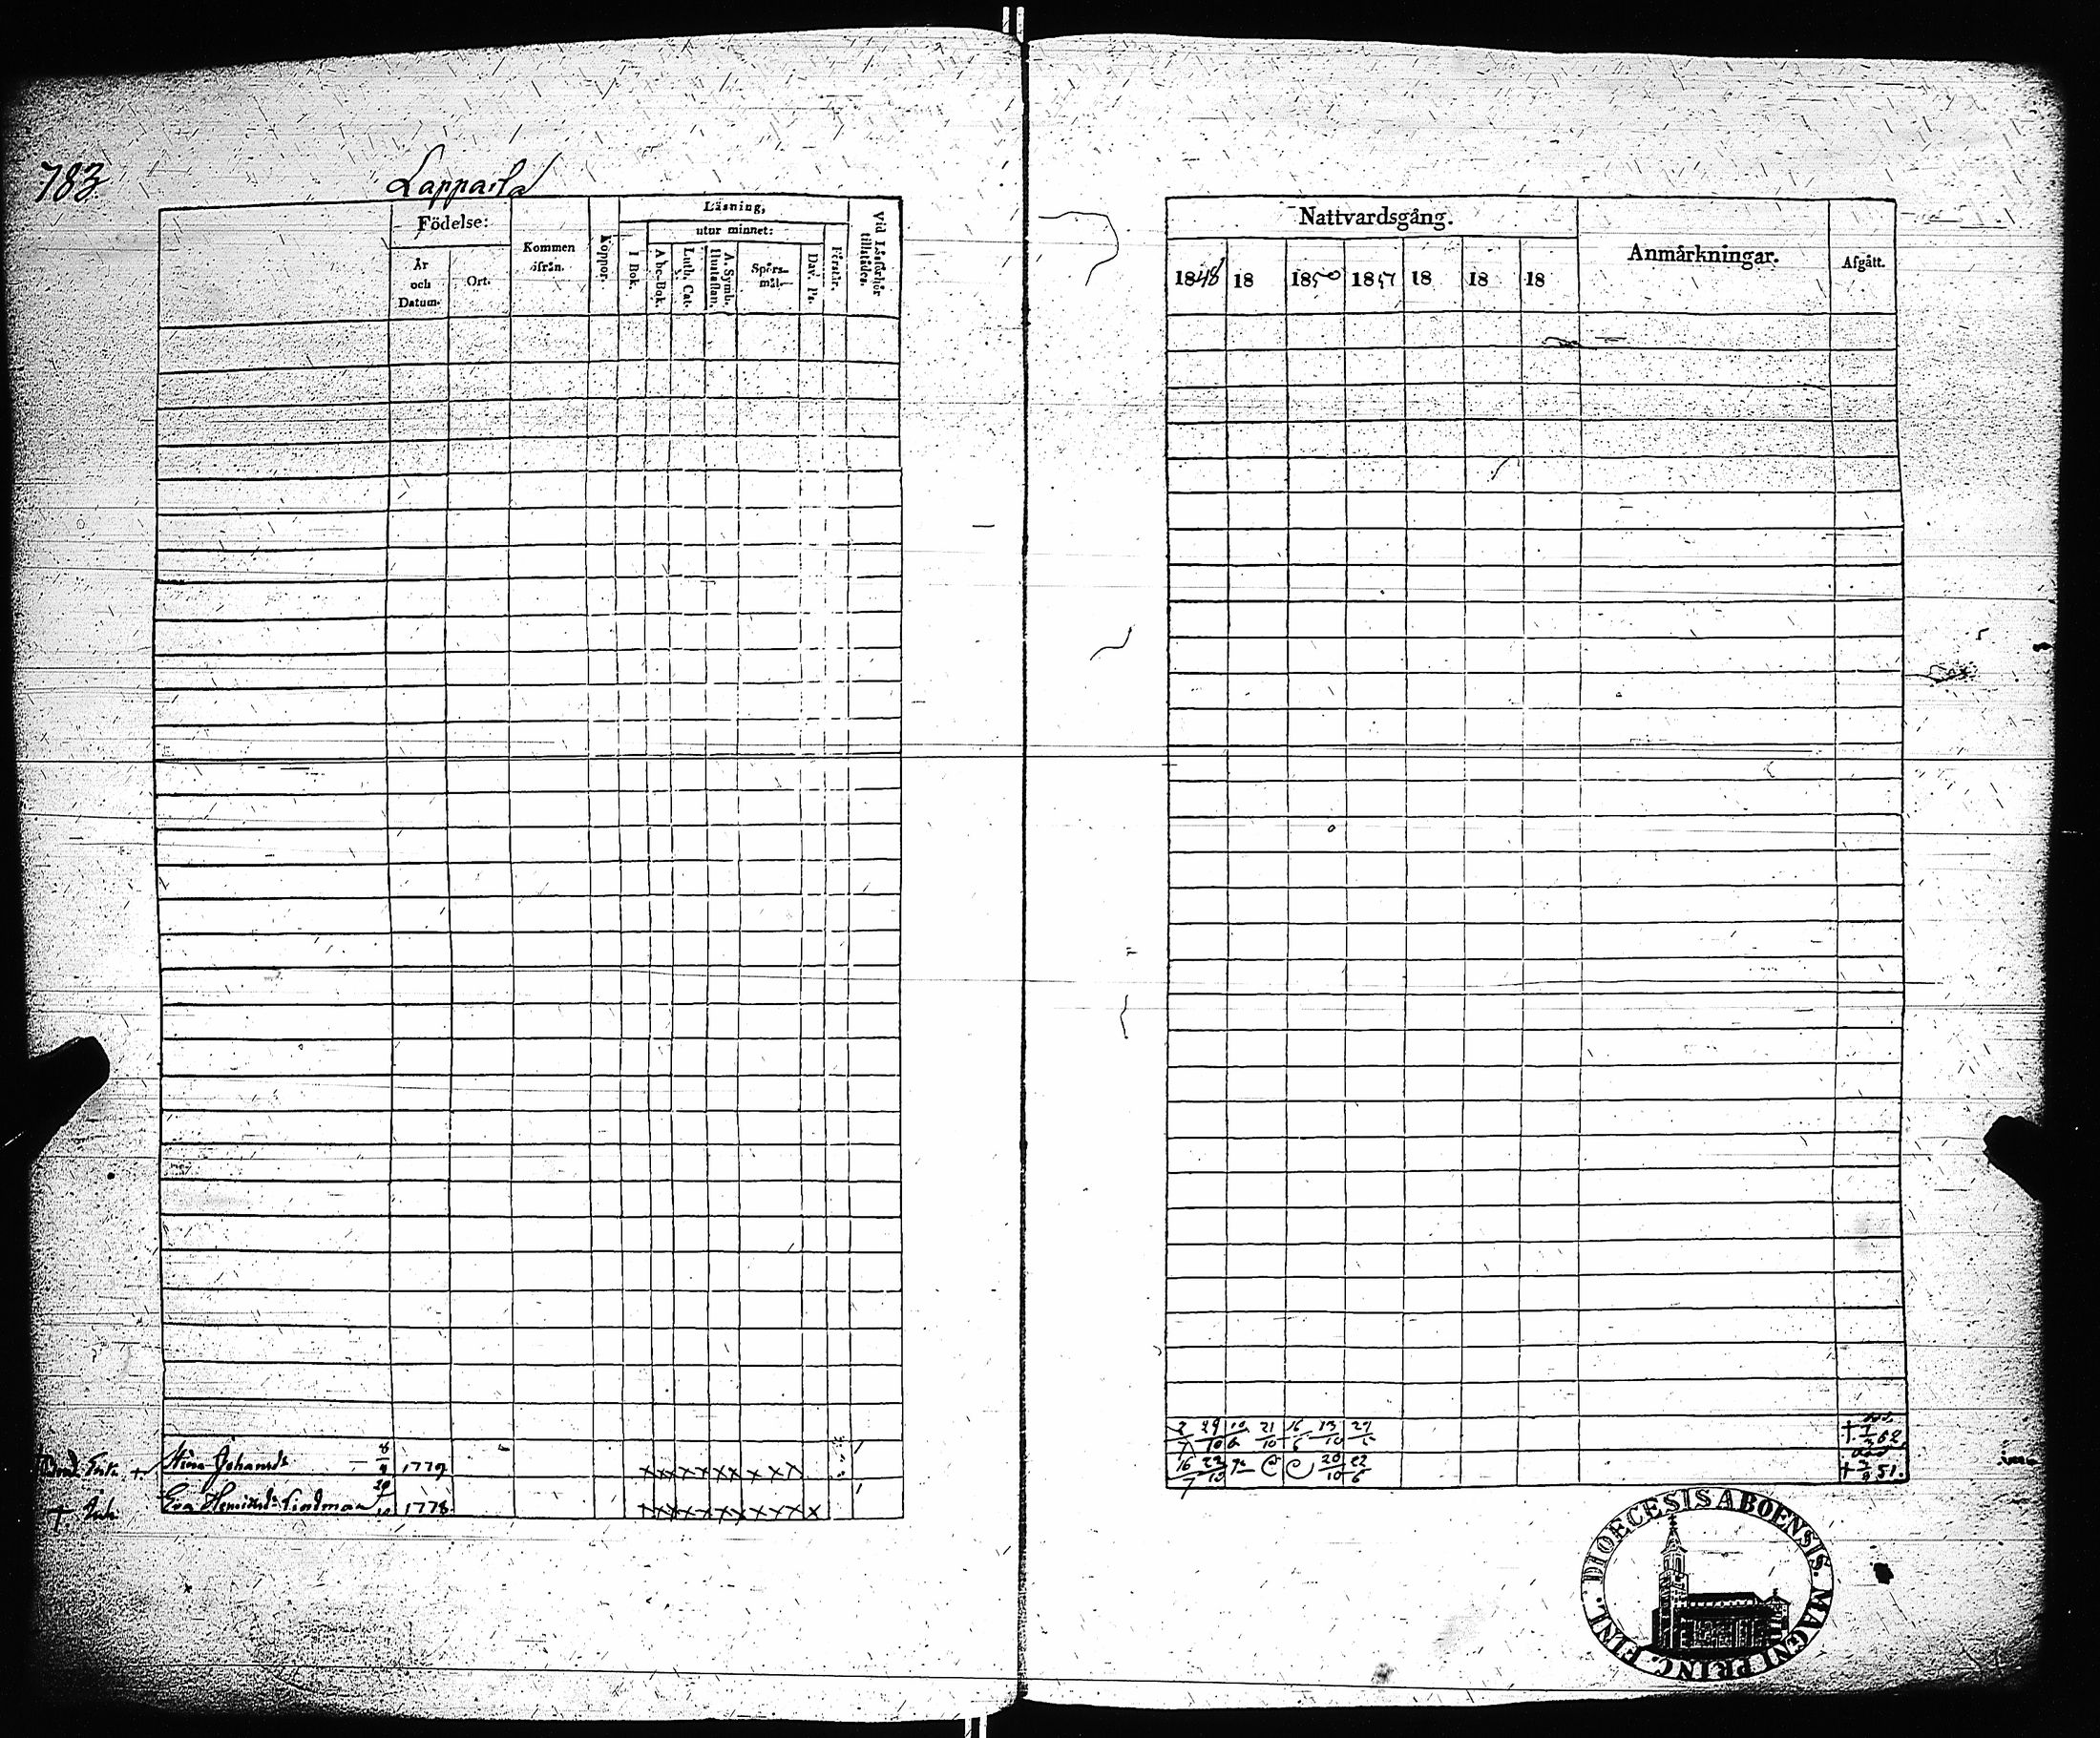 783
Lapparla
Födelse:
År
och
Datum.
Ort.
Kommen
ifrån.
Koppor.
Läsning,
utur minnet:
I Bok.
Abc-Bok.
Luth. Cat.
A. Symb.
Hustaflan.
Spörs-
mål.
Dav. Ps.
Förstår.
Vid Läsförhör
tillstädes.
Nattvardsgång.
1848 18 1850 1851 18 18 18
Anmärkningar.
Afgått.
+ Stina Johansdr 8/4 1779 x x x x x x x x x
+ Enk. Eva Henriksdr Lindman 29 1778 x x x x x x x x x x
29/10 21/10 16/6 13/10 27
16/7 22/10 20/10 22/6
† 62
† 51.
DIOECESIS ABOENSIS. MAGNI PRINC. FINL.